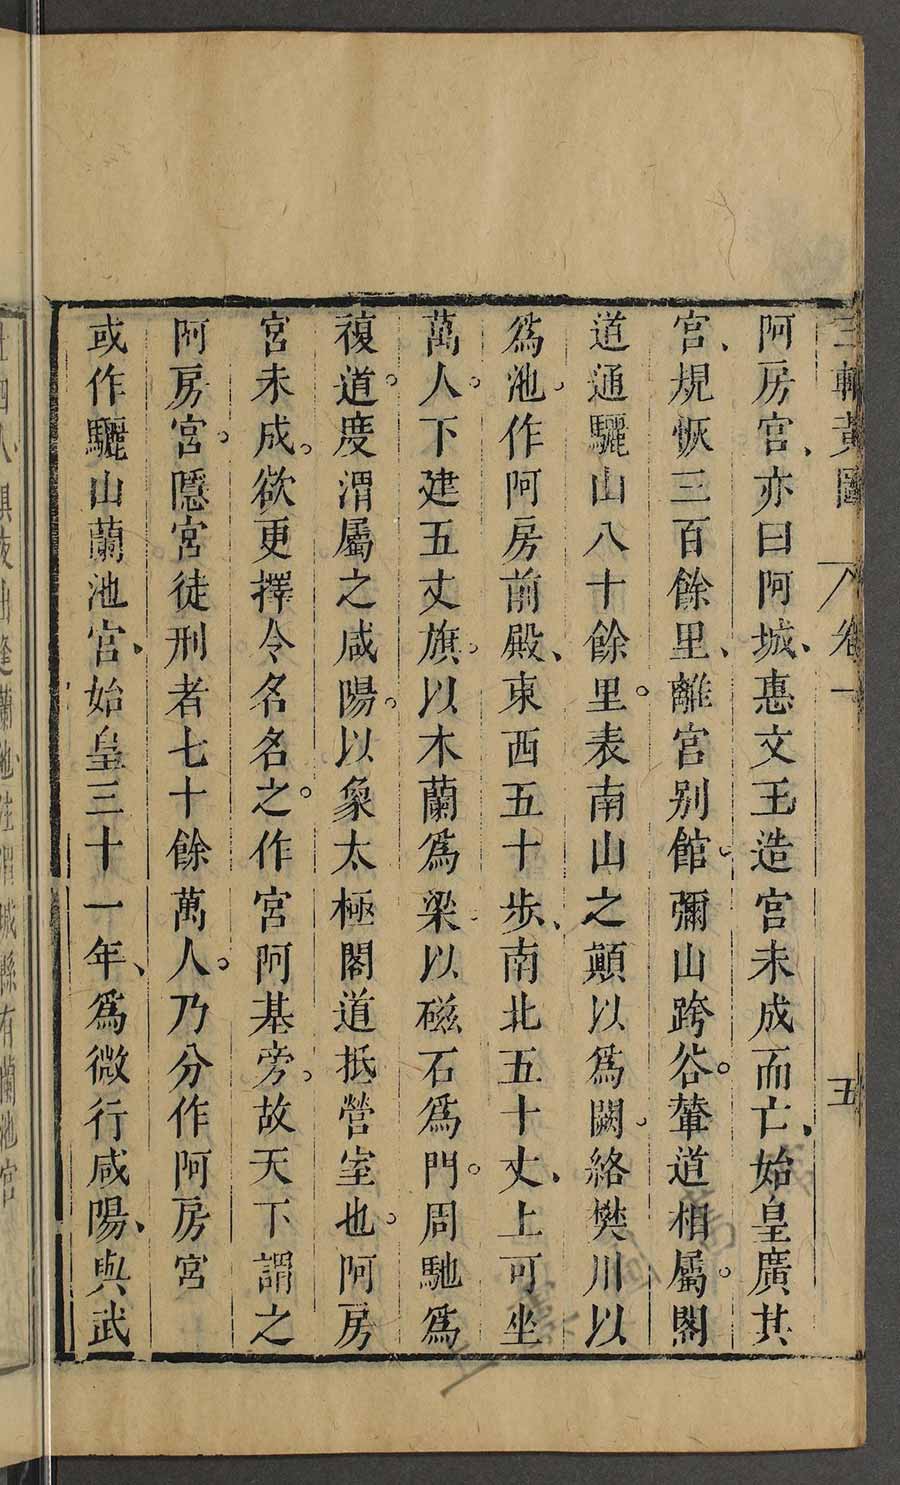 三輔黃圖 卷一 五
阿房宮、亦曰阿城、惠文王造宮未成而亡、始皇廣其
宮、規恢三百餘里、離宮別館彌山跨谷。輦道相屬。閣
道通驪山八十餘里。表南山之顛以爲闕。絡樊川以
爲池。作阿房前殿、東西五十步、南北五十丈、上可坐
萬人。下建五丈旗。以木蘭爲梁以磁石爲門。周馳爲
複道。度渭屬之咸陽。以象太極閣道抵營室也。阿房
宮未成。欲更擇令名名之。作宮阿基旁。故天下謂之
阿房宮。隱宮徒刑者七十餘萬人。乃分作阿房宮
或作驪山蘭池宮、始皇三十一年、爲微行咸陽、與武